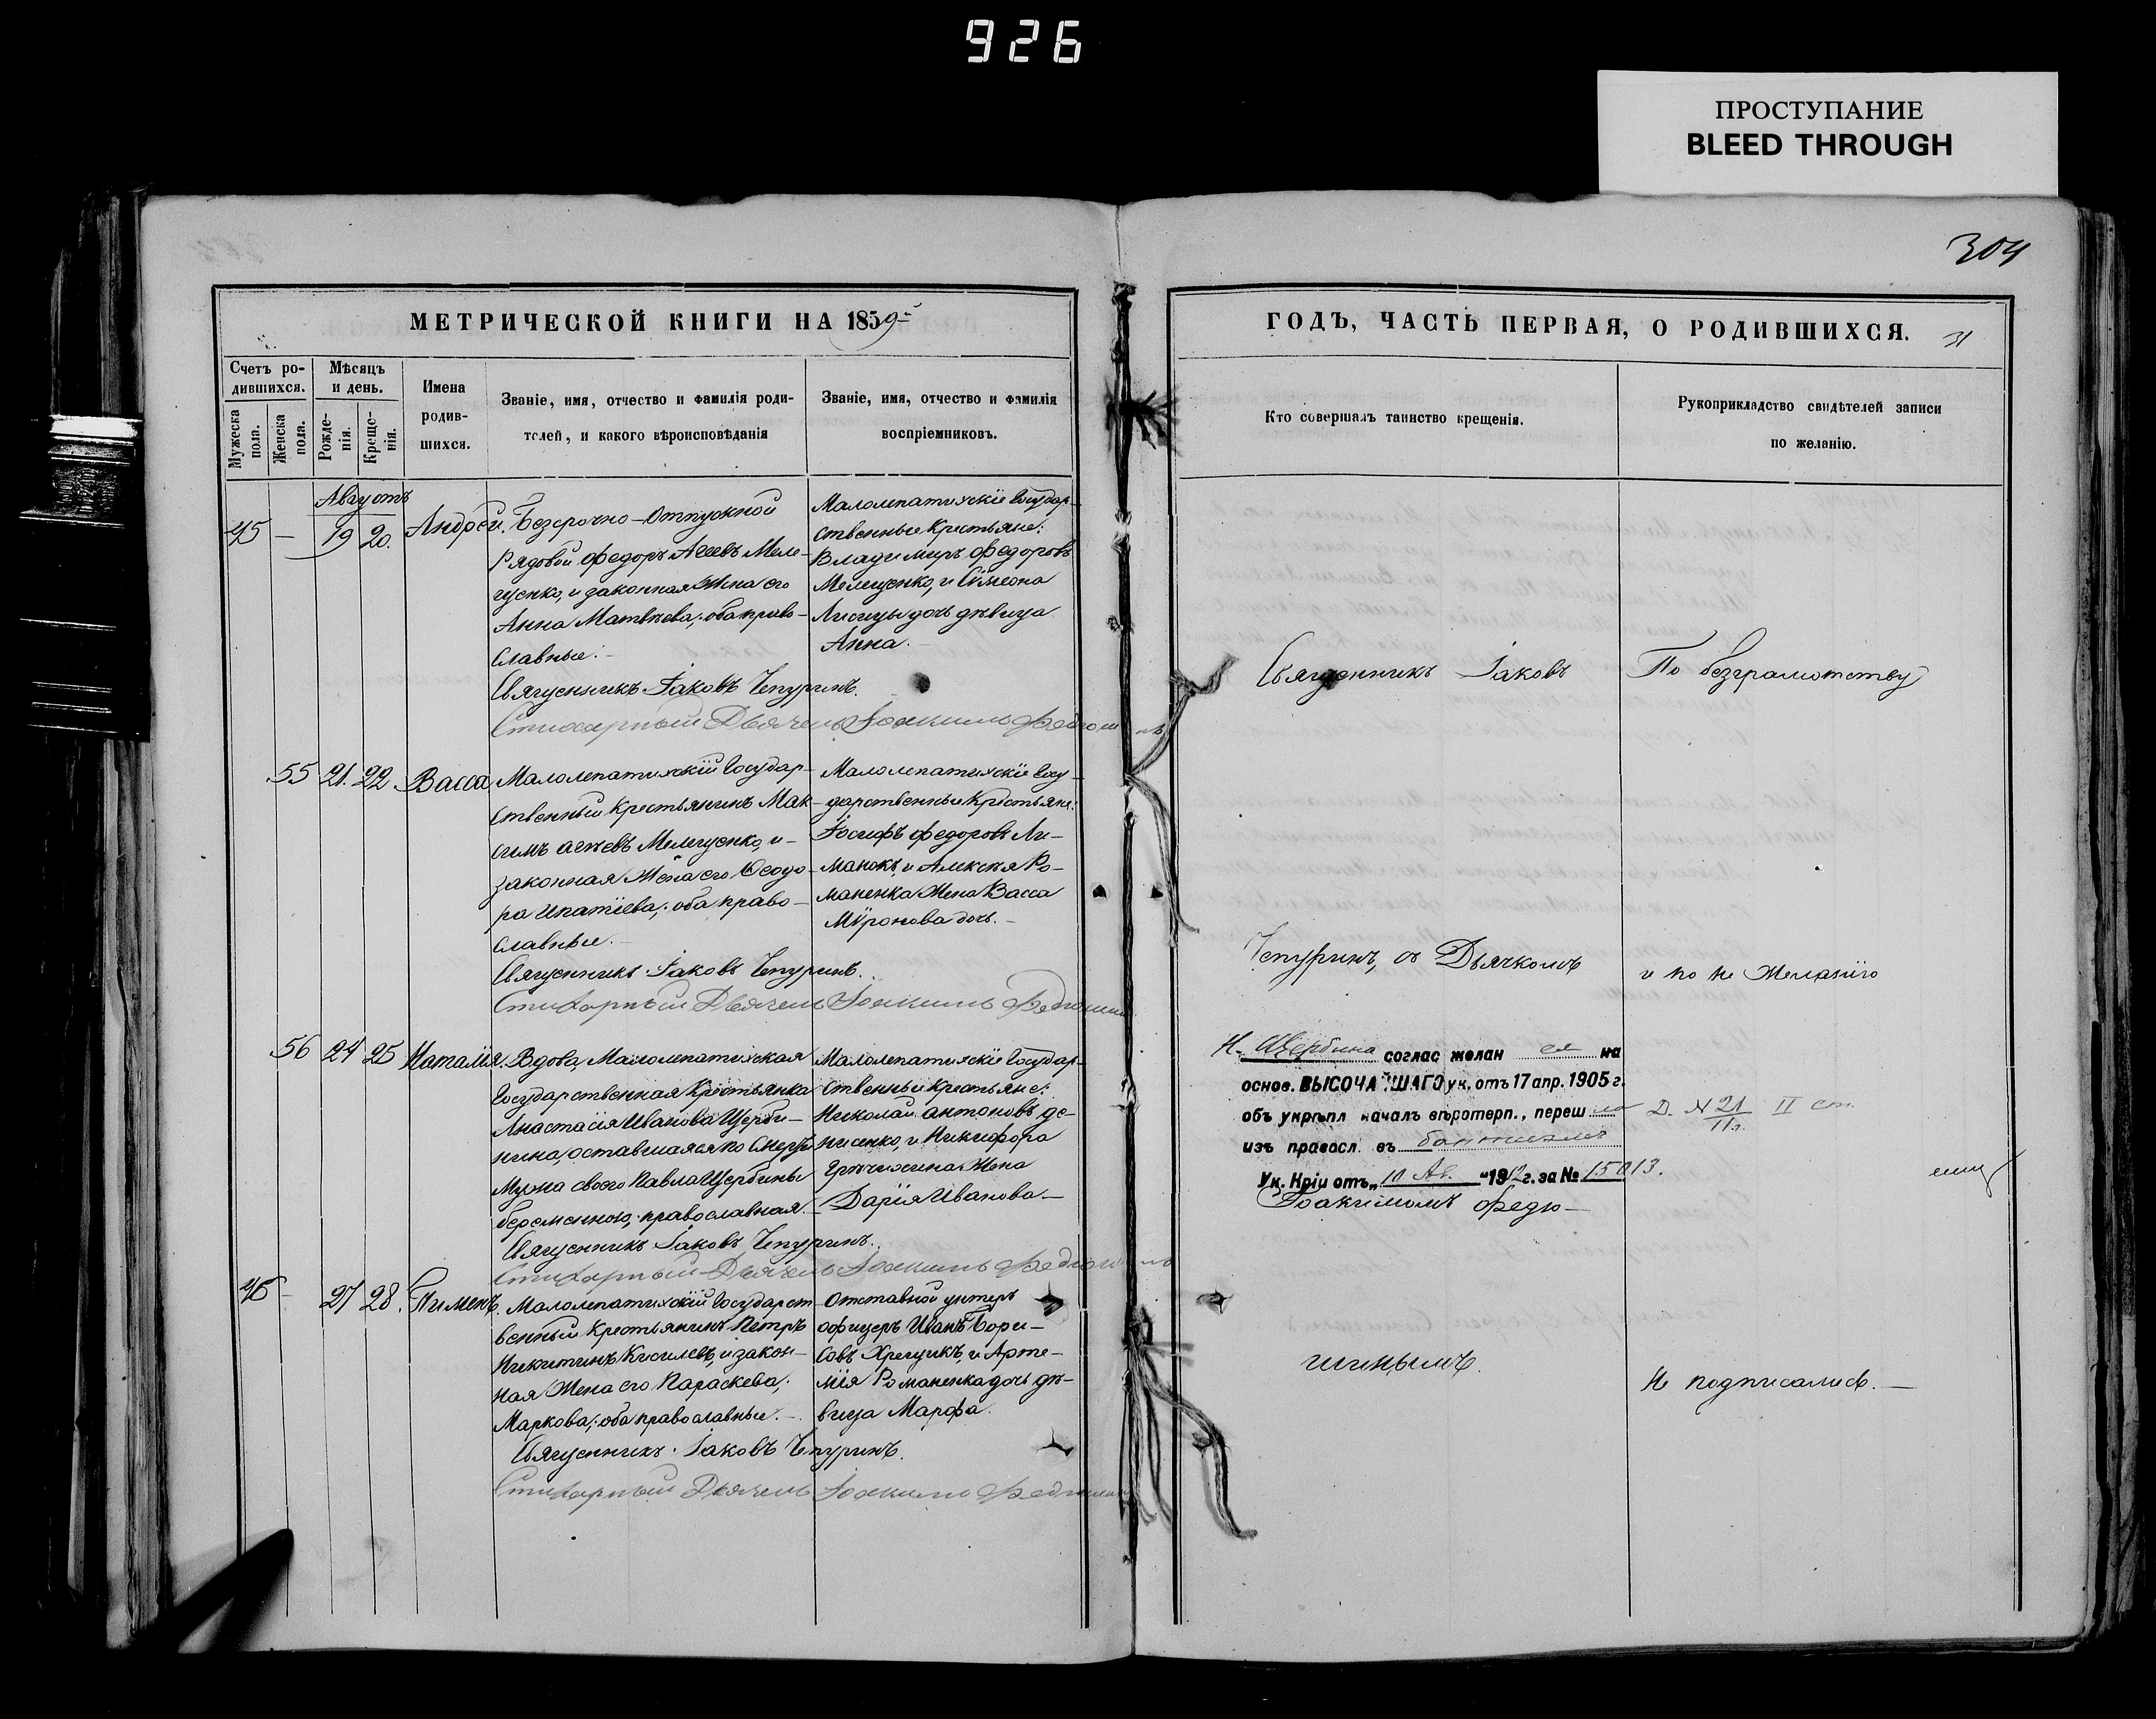 926
ПРОСТУПАНИЕ
BLEED THROUGH
304
МЕТРИЧЕСКОЙ КНИГИ НА 1859
ГОДЪ, ЧАСТЬ ПЕРВАЯ, О РОДИВШИХСЯ.
31
Счетъ ро-
дившихся.
Мужеска пола.
Женска пола.
Мѣсяцъ
и день.
Рожде-
нія.
Креще-
нія.
Имена
родив-
шихся.
Званіе, имя, отчество и фамилія роди-
телей, и какого вѣроисповѣданія
Званіе, имя, отчество и фамилія
воспріемниковъ.
Кто совершалъ таинство крещенія.
Рукоприкладство свидѣтелей записи
по желанію.
Августъ
45 — 19 20. Андрей.
Безсрочно-Отпускной
Рядовой Федоръ Агеевъ Меле-
щенко, и законная Жена его
Анна Матвѣева; оба право-
славные.
Малолепатихскіе Государ-
ственные Крестьяне:
Владимиръ Федоровъ
Мелещенко, и Сімеона
Лисицы дочь дѣвица
Анна.
Священникъ Іаковъ Чепуринъ.
Стихарный Дьячекъ Іоакимъ Федюшинъ
55 21. 22. Васса
Малолепатихскій Государ-
ственный Крестьянинъ Мак-
симъ агѣевъ Мелещенко, и
законная Жена его Ѳеодо-
ра Ипатіева; оба право-
славные.
Малолепатихскіе Госу-
дарственные Крестьяне:
Іосифъ Федоровъ Ли-
манокъ, и Алексѣя Ро-
маненка Жена Васса
Мѵронова дочь.
Священникъ Іаковъ Чепуринъ.
Стихарный Дьячекъ Іоакимъ Федюшинъ
56 24 25 Наталія.
Вдова, Малолепатихская
Государственная Крестьянка
Анастасія Иванова Щерби-
нина, оставшаяся по смерти
мужа своего Павла Щербины
беременною, православная.
Малолепатихскіе Государ-
ственные Крестьяне:
Николай антоновъ де-
нисенко, и Никифора
Гречихина Жена
Дарія Иванова
Священникъ Іаковъ Чепуринъ.
Стихарный Дьячекъ Іоакимъ Федюшинъ
46 — 27 28. Пименъ.
Малолепатихскій Государст-
венный Крестьянинъ Петръ
Никитинъ Киселевъ, и закон-
ная Жена его Параскева
Маркова; оба православные.
Отставной унтеръ
офицеръ Иванъ Бори-
совъ Хрещикъ, и Арте-
мія Романенка дочь дѣ-
вица Марфа.
Священникъ Іаковъ Чепуринъ.
Стихарный Дьячекъ Іоакимъ Федюшинъ
Священникъ Іаковъ
Чепуринъ, съ Дьячкомъ
Н. Щербина соглас желан ея на
основ. ВЫСОЧАЙШАГО ук. отъ 17 апр. 1905 г.
объ укрѣпл началъ вѣротерп., переш ла
изъ правосл. въ баптизмъ
Ук. Кріи отъ „10 Ав. “ 1912 г. за № 15013.
Д. № 21 II ст.
Іоакимомъ Федю-
шинымъ.
По безграмотству
и по не Желанію
не подписались.